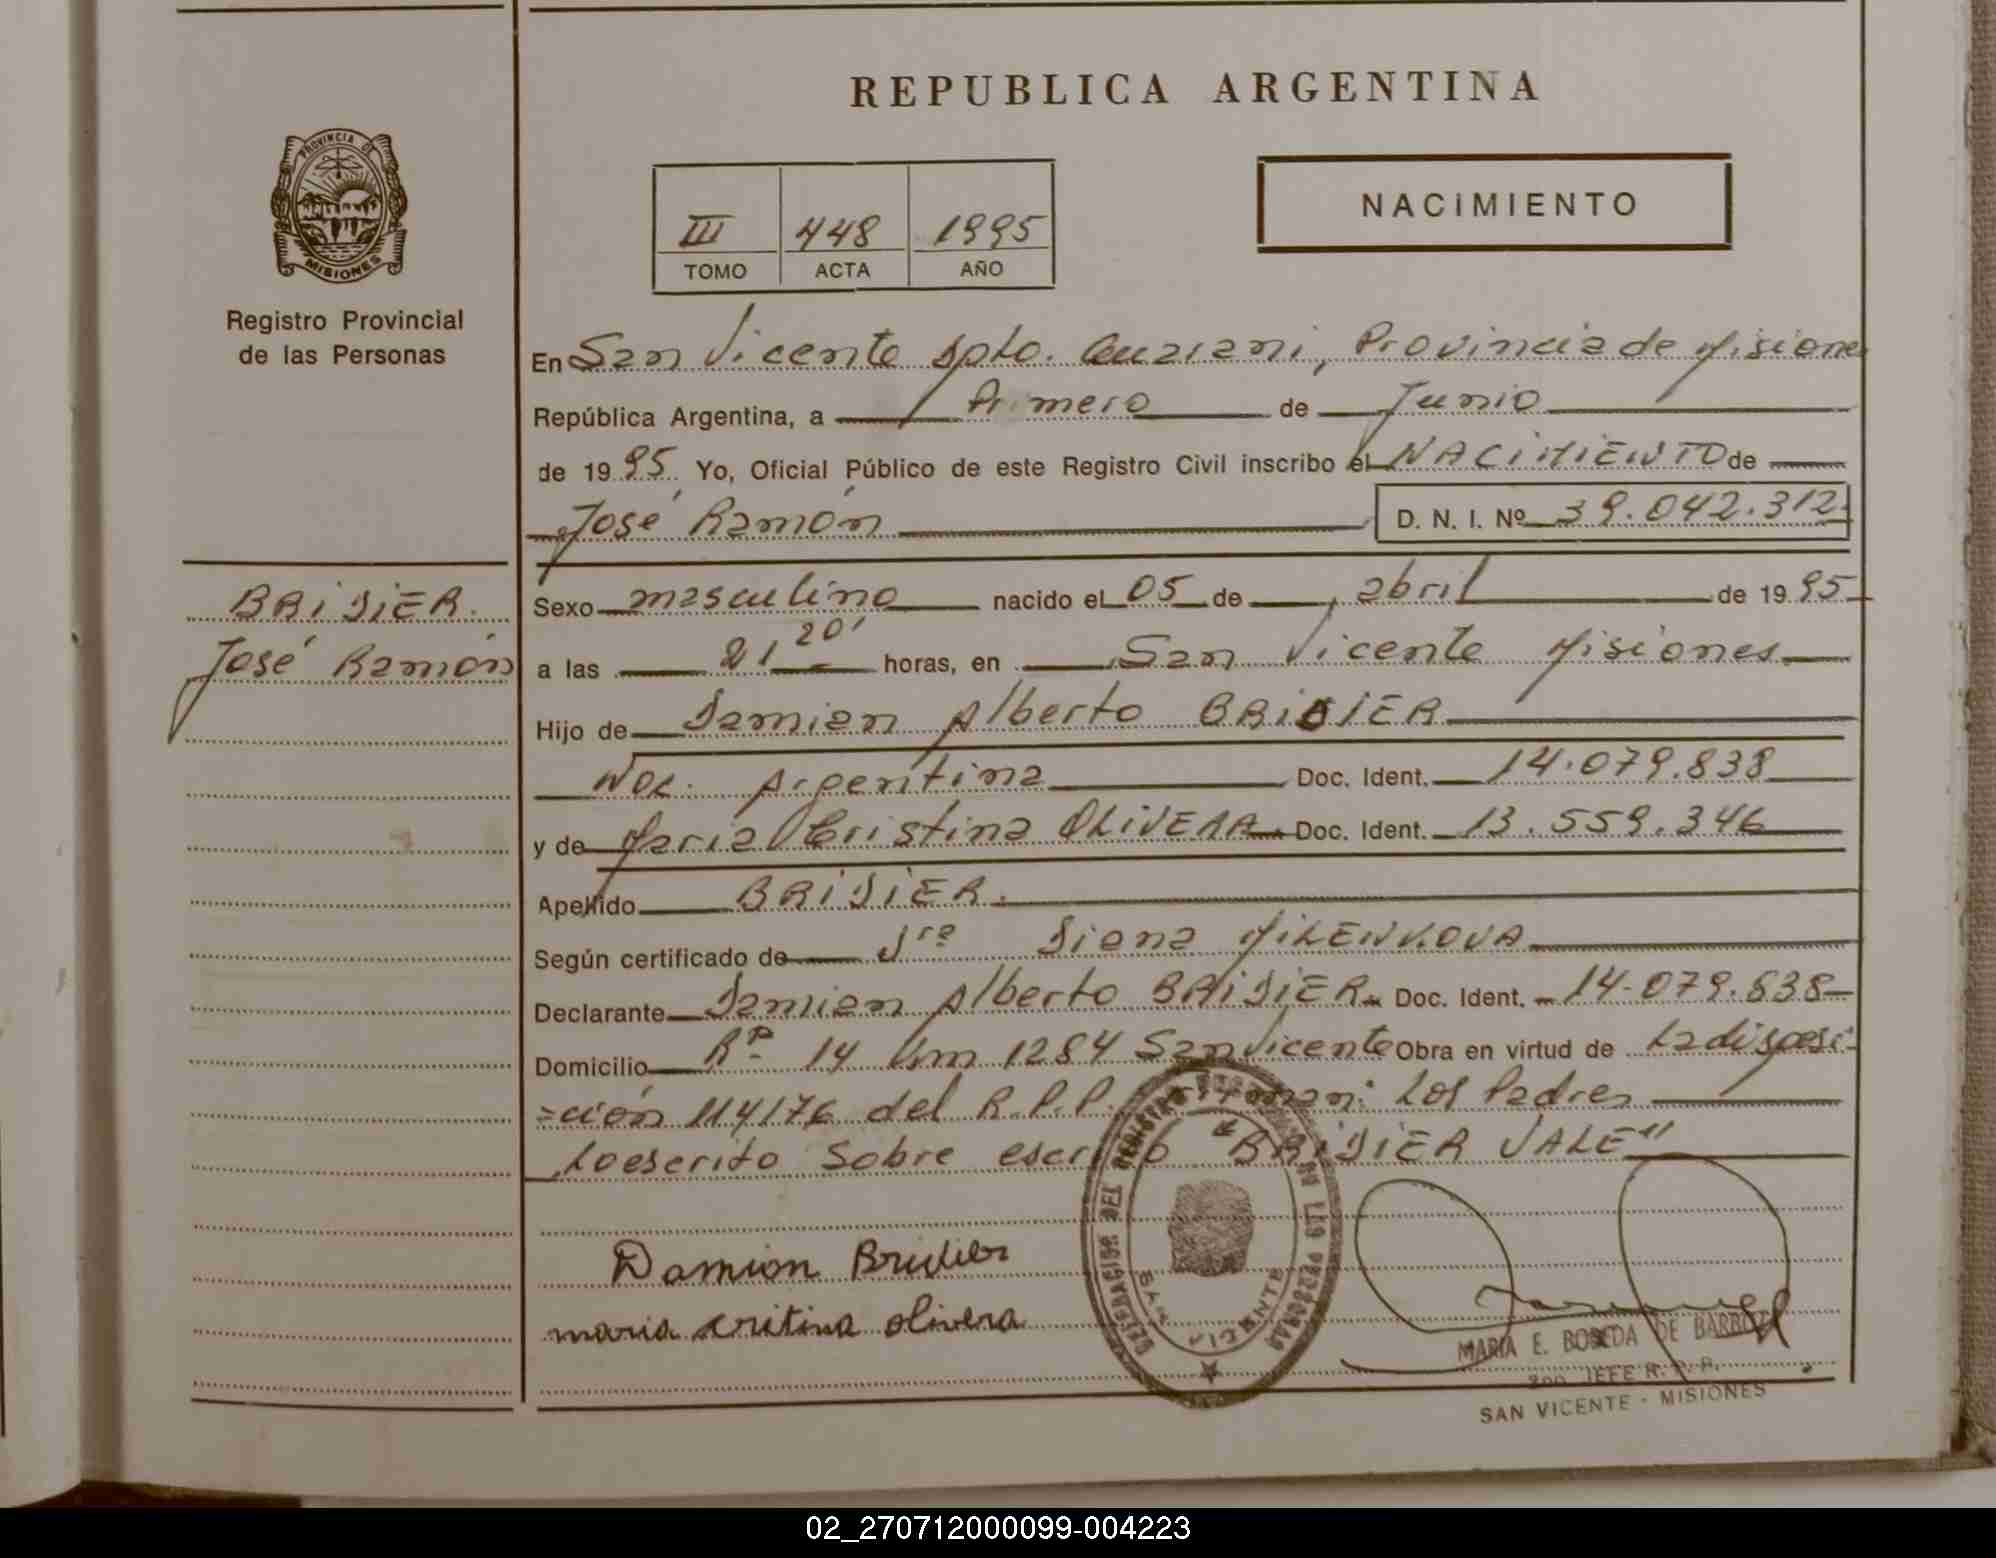 REPUBLICA ARGENTINA
PROVINCIA DE
MISIONES
Registro Provincial
de las Personas
III 448 1995
TOMO ACTA AÑO
NACIMIENTO
En San Vicente Dpto. Guarani, Provincia de Misiones
República Argentina, a Primero de Junio
de 1995. Yo, Oficial Público de este Registro Civil inscribo el NACIMIENTO de
José Ramón D. N. I. Nº 39.042.312.
BRIDIER.
José Ramón
Sexo masculino nacido el 05 de abril de 1995
a las 21 20' horas, en San Vicente Misiones
Hijo de Damian Alberto BRIDIER
Nac. Argentina Doc. Ident. 14.079.838
y de Maria Cristina OLIVERA Doc. Ident. 13.559.346
Apellido BRIDIER.
Según certificado de Dra Diana MILENKOVA
Declarante Damian Alberto BRIDIER Doc. Ident. 14.079.838
Domicilio Rª 14 Km 1284 San Vicente Obra en virtud de La disposi-
=ción 114/76 del R.P.P. Firman: Los Padres
Lo escrito Sobre escrito "BRIDIER VALE"
Damion Bridier
maria critina olivera
SAN VICENTE
MARIA E. BOBEDA DE BARBOZA
2do. JEFE R. P. P.
SAN VICENTE - MISIONES
02_270712000099-004223